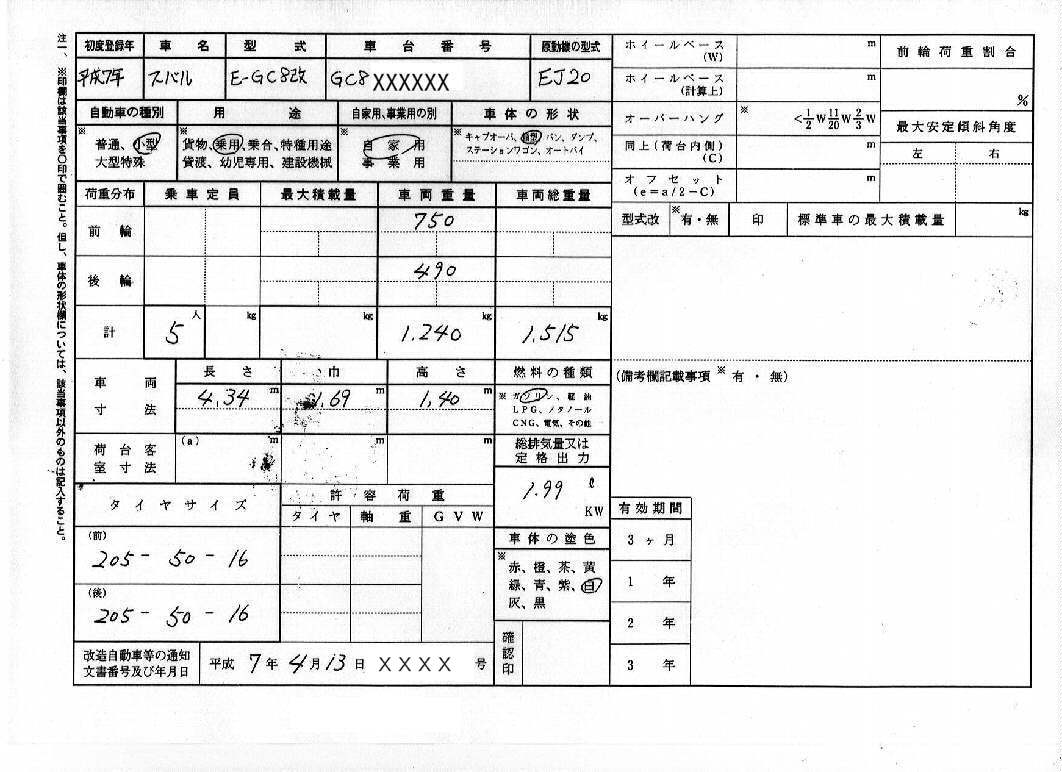 注一、※印欄は該当事項を〇印で囲むこと。但し、車体の形状欄については、該当事項以外のものは記入すること。
初度登録年 車名 型式 車台番号 原動機の型式
平成7年 スバル E-GC8改 GC8XXXXXX EJ20
自動車の種別 用途 自家用、事業用の別 車体の形状
※ 普通、小型 ※ 貨物、乗用、乗合、特種用途 ※ 自家用 ※ キャブオーバ、箱型、バン、ダンプ、
大型特殊 貨渡、幼児専用、建設機械 事業用 ステーションワゴン、オートバイ
荷重分布 乗車定員 最大積載量 車両重量 車両総重量
前輪 750
後輪 490
計 5人 kg kg 1.240kg 1.515kg
車両寸法 長さ 巾 高さ 燃料の種類
4.34m 1.69m 1.40m ※ ガソリン、軽油
LPG、メタノール
CNG、電気、その他
荷台客室寸法 (a) m m m 総排気量又は
定格出力
1.99 ℓ
KW
※
タイヤサイズ 許容荷重
タイヤ 軸重 GVW
(前)
205-50-16
(後)
205-50-16
車体の塗色
※
赤、橙、茶、黄
緑、青、紫、白
灰、黒
改造自動車等の通知 平成7年4月13日 XXXX 号
文書番号及び年月日
確認印
ホイールベース(W) m 前輪荷重割合
ホイールベース(計算上) m %
オーバーハング ※ <1/2W 11/20W 2/3W 最大安定傾斜角度
同上(荷台内側)(C) m 左 右
オフセット(e=a/2-C) m
型式改 ※有・無 印 標準車の最大積載量 kg
(備考欄記載事項 ※ 有・無)
有効期間
3ヶ月
1年
2年
3年